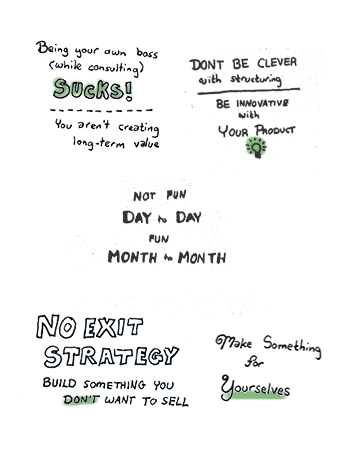 Being your own boss
(while consulting)
SUCKS!
You aren't creating
long-term value
DONT BE CLEVER
with structuring
BE INNOVATIVE
with
YOUR PRODUCT
NOT FUN
DAY to DAY
FUN
MONTH to MONTH
NO EXIT
STRATEGY
BUILD SOMETHING YOU
DON'T WANT TO SELL
Make Something
for
Yourselves